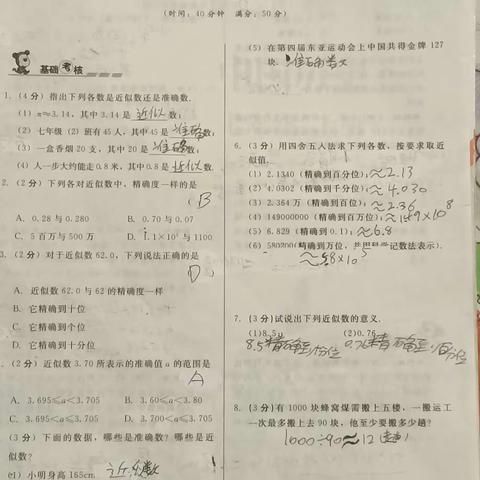 (时间：40分钟 满分：50分)
基础考核
1. (4分) 指出下列各数是近似数还是准确数.
(1) π≈3.14，其中3.14是 近似 数；
(2) 七年级(2)班有45人，其中45是 准确 数；
(3) 一盒香烟20支，其中20是 准确 数；
(4) 人一步大约能走0.8米，其中0.8是 近似 数.
2. (2分) 下列各对近似数中，精确度一样的是
( B
A. 0.28与0.280 B. 0.70与0.07
C. 5百万与500万 D. 1.1×10³与1100
3. (2分) 对于近似数62.0，下列说法正确的是
D
A. 近似数62.0与62的精确度一样
B. 它精确到十位
C. 它精确到个位
D. 它精确到十分位
(2分) 近似数3.70所表示的准确值a的范围是
A
A. 3.695≤a<3.705 B. 3.60<a<3.80
C. 3.695<a≤3.705 D. 3.700<a≤3.705
(3分) 下面的数据，哪些是准确数？哪些是近
似数？
(1) 小明身高165cm. 近似数
(5) 在第四届东亚运动会上中国共得金牌127
块. 准确数
6. (3分) 用四舍五入法求下列各数，按要求取近
似值.
(1) 2.1340 (精确到百分位)；≈2.13
(2) 4.0302 (精确到千分位)；≈4.030
(3) 2.364万 (精确到百位)；≈2.36
(4) 149000000 (精确到百万位)；≈1.49×10⁸
(5) 6.829 (精确到0.1)；≈6.8
(6) 580200(精确到万位，并用科学记数法表示).
≈58×10⁵
7. (3分) 试说出下列近似数的意义.
(1)8.5； (2)0.76.
8.5精确到十分位 0.76精确到百分位
8. (3分) 有1000块蜂窝煤需搬上五楼，一搬运工
一次最多搬上去90块，他至少要搬多少趟？
1000÷90≈12(趟)